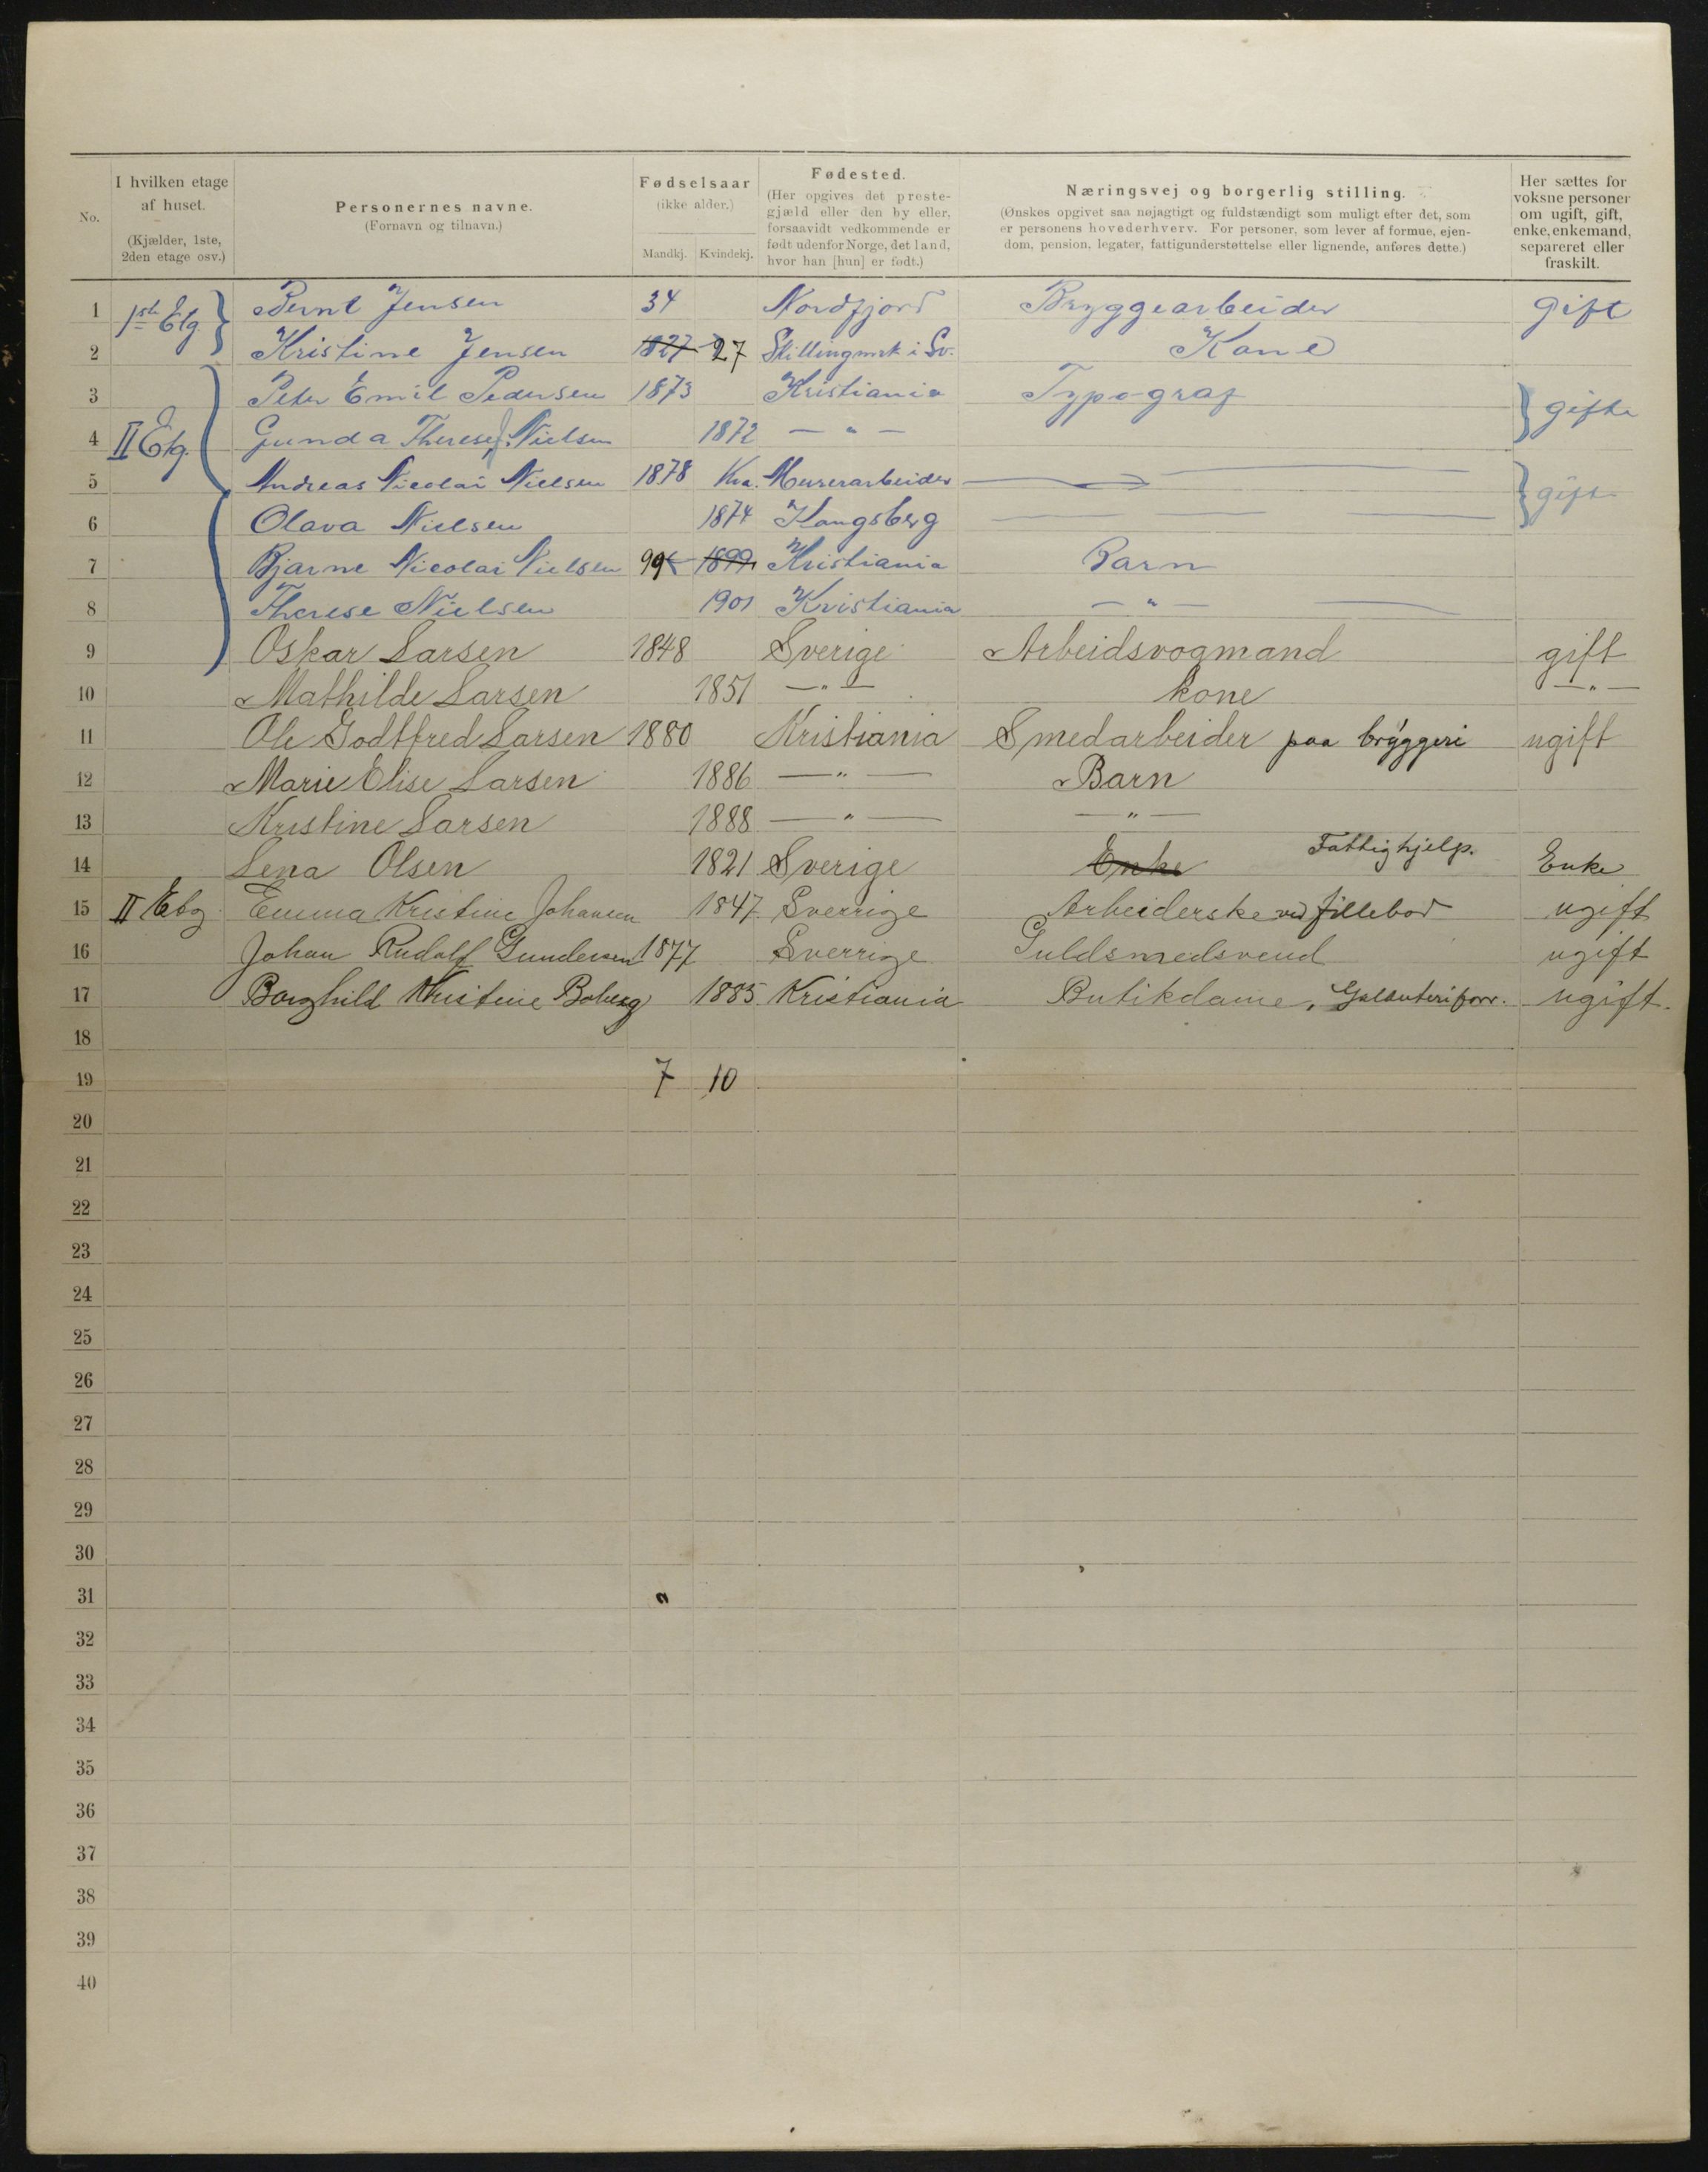 No. I hvilken etage af huset. (Kjælder, 1ste, 2den etage osv.) Personernes navne. (Fornavn og tilnavn.) Fødselsaar (ikke alder.) Mandkj. Kvindekj. Fødested. (Her opgives det prestegjæld eller den by eller, forsaavidt vedkommende er født udenfor Norge, det land, hvor han [hun] er født.) Næringsvej og borgerlig stilling. (Ønskes opgivet saa nøjagtigt og fuldstændigt som muligt efter det, som er personens hovederhverv. For personer, som lever af formue, ejendom, pension, legater, fattigunderstøttelse eller lignende, anføres dette.) Her sættes for voksne personer om ugift, gift, enke, enkemand, separeret eller fraskilt.
1 1ste Etg. Bernt Jensen 34 Nordfjord Bryggearbeider gift
2 Kristine Jensen 1827 27 i Sv. Kone
3 Peter Emil Pedersen 1873 Kristiania Typograf gifte
4 II Etg. Gunda Therese Nielsen 1872 — " —
5 Andreas Nicolai Nielsen 1878 Kra. Murerarbeider gift
6 Olava Nielsen 1874 Kongsberg
7 Bjarne Nicolai Nielsen 99 1899 Kristiania Barn
8 Therese Nielsen 1901 Kristiania — " —
9 Oskar Larsen 1848 Sverige Arbeidsvogmand gift
10 Mathilde Larsen 1851 — " — kone — " —
11 Ole Godtfred Larsen 1880 Kristiania Smedarbeider paa bryggeri ugift
12 Marie Elise Larsen 1886 — " — Barn
13 Kristine Larsen 1888 — " — — " —
14 Lena Olsen 1821 Sverige Enke Fattighjelp. Enke
15 II Etg Emma Kristine Johansen 1847 Sverrige Arbeiderske ved fillebod ugift
16 Johan Rudolf Gundersen 1877 Sverrige Guldsmedsvend ugift
17 Borghild Kristine Boberg 1885 Kristiania Butikdame, Galanteriforr. ugift.
18
19 7 10
20
21
22
23
24
25
26
27
28
29
30
31
32
33
34
35
36
37
38
39
40